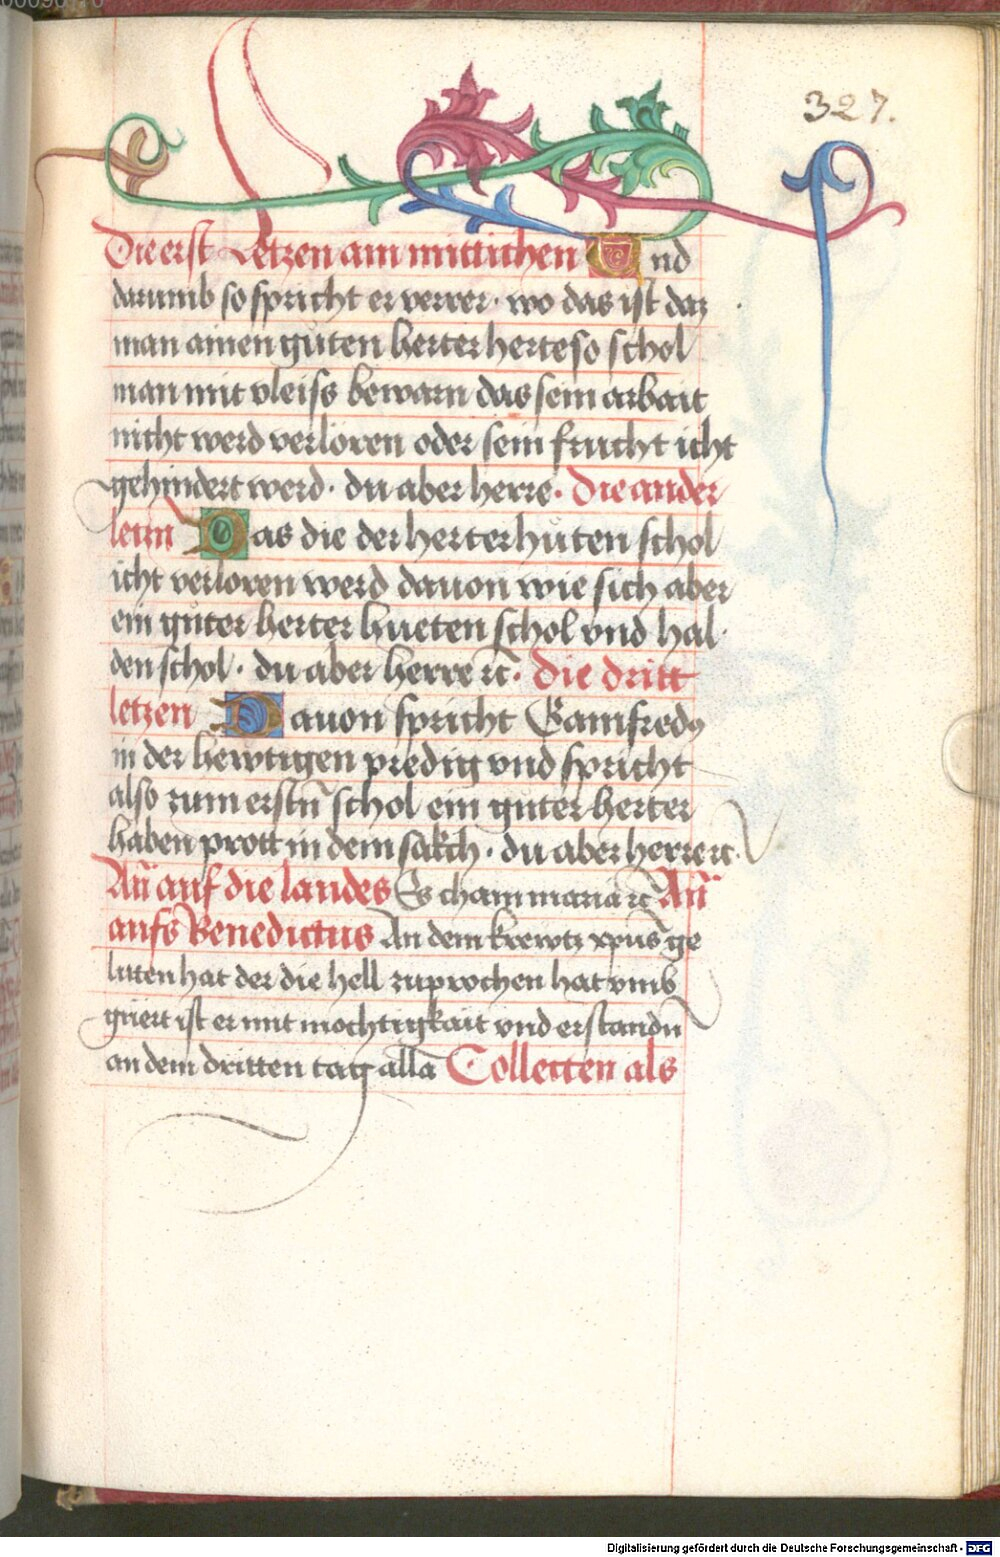 327.
Die erst Letzen am mittichen Vnd
darumb so spricht er verrer · wo das ist daz
man ainen guten herter herte so schol
man mit vleiss bewarn das sein arbait
nicht werd verloren oder sein frucht icht
gehindert werd · du aber herre · Die ander
leczn Das die der herter huten schol
icht verloren werd dauon wie sich aber
ein guter herter hueten schol vnd hal
den schol · du aber herre rc · die dritt
letzen Dauon spricht Gamfredy
in der hewtigen predig vnd spricht
also zum erstn schol ein guter herter
haben prott in dem sakch · du aber herre rc ·
An̄ auf die laudes Es cham maria rc An̄
aufs Benedictus An dem krewtz xpus ge
liten hat der die hell zuprochen hat vmb
gúert ist er mit mochtigkait vnd erstandn
an dem dritten tag alla Collecten als
Digitalisierung gefördert durch die Deutsche Forschungsgemeinschaft - DFG